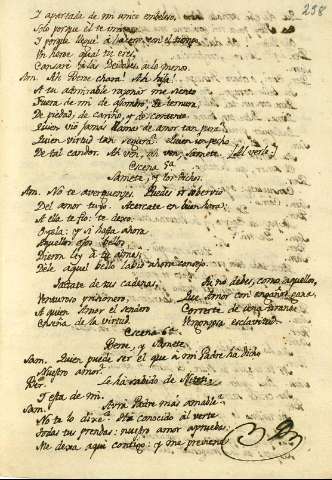 258
I apartada de mi unico embeleso,
Solo porque èl te mira
I porque llegue à la
Un heroe, qual tu eres,
Cansaré à las Deidades à lo menos.
Am. Ah Beroe chara! Ah hija!
A tu admirable razonar me siento
Fuera de mi de asombro, de ternura,
De piedad, de cariño, y de contento.
Quien vio jamás llamas de amor tan pura?
Quien virtud tan segura? Quien un pecho
De tal candor. Ah ven, ah ven, Samete. (Al verle)
Escena 5ª
Samete, y los dichos.
Am. No te averguenzes. Puedes ir sobervio
Del amor tuyo. Acercate en buen hora:
A ella te fio: te dexo.
Oyela: y si hasta ahora
Aquellos ojos bellos
Dieron ley à tu alma;
Dele aquel bello labio ahora consejo.
Jactate de tus cadenas,
Venturoso prisionero,
A quien Amor el sendero
Enseña de la virtud.
Tu no debes, como aquellos,
Que Amor con engaños gana,
Correrte de una tirana
Vergonzosa esclavitud.
Escena 6ª
Beroe, y Samete.
Sam. Quien puede ser el que à mi Padre ha dicho
Nuestro amor?
Ber. Lo ha sabido de Nitteti
I esta de mi.
Sam. Avrá Padre más amable?
No te lo dixe? Ha conocido al verte
Todas tus prendas: nuestro amor aprueba:
Me dexa aqui contigo: y me previene